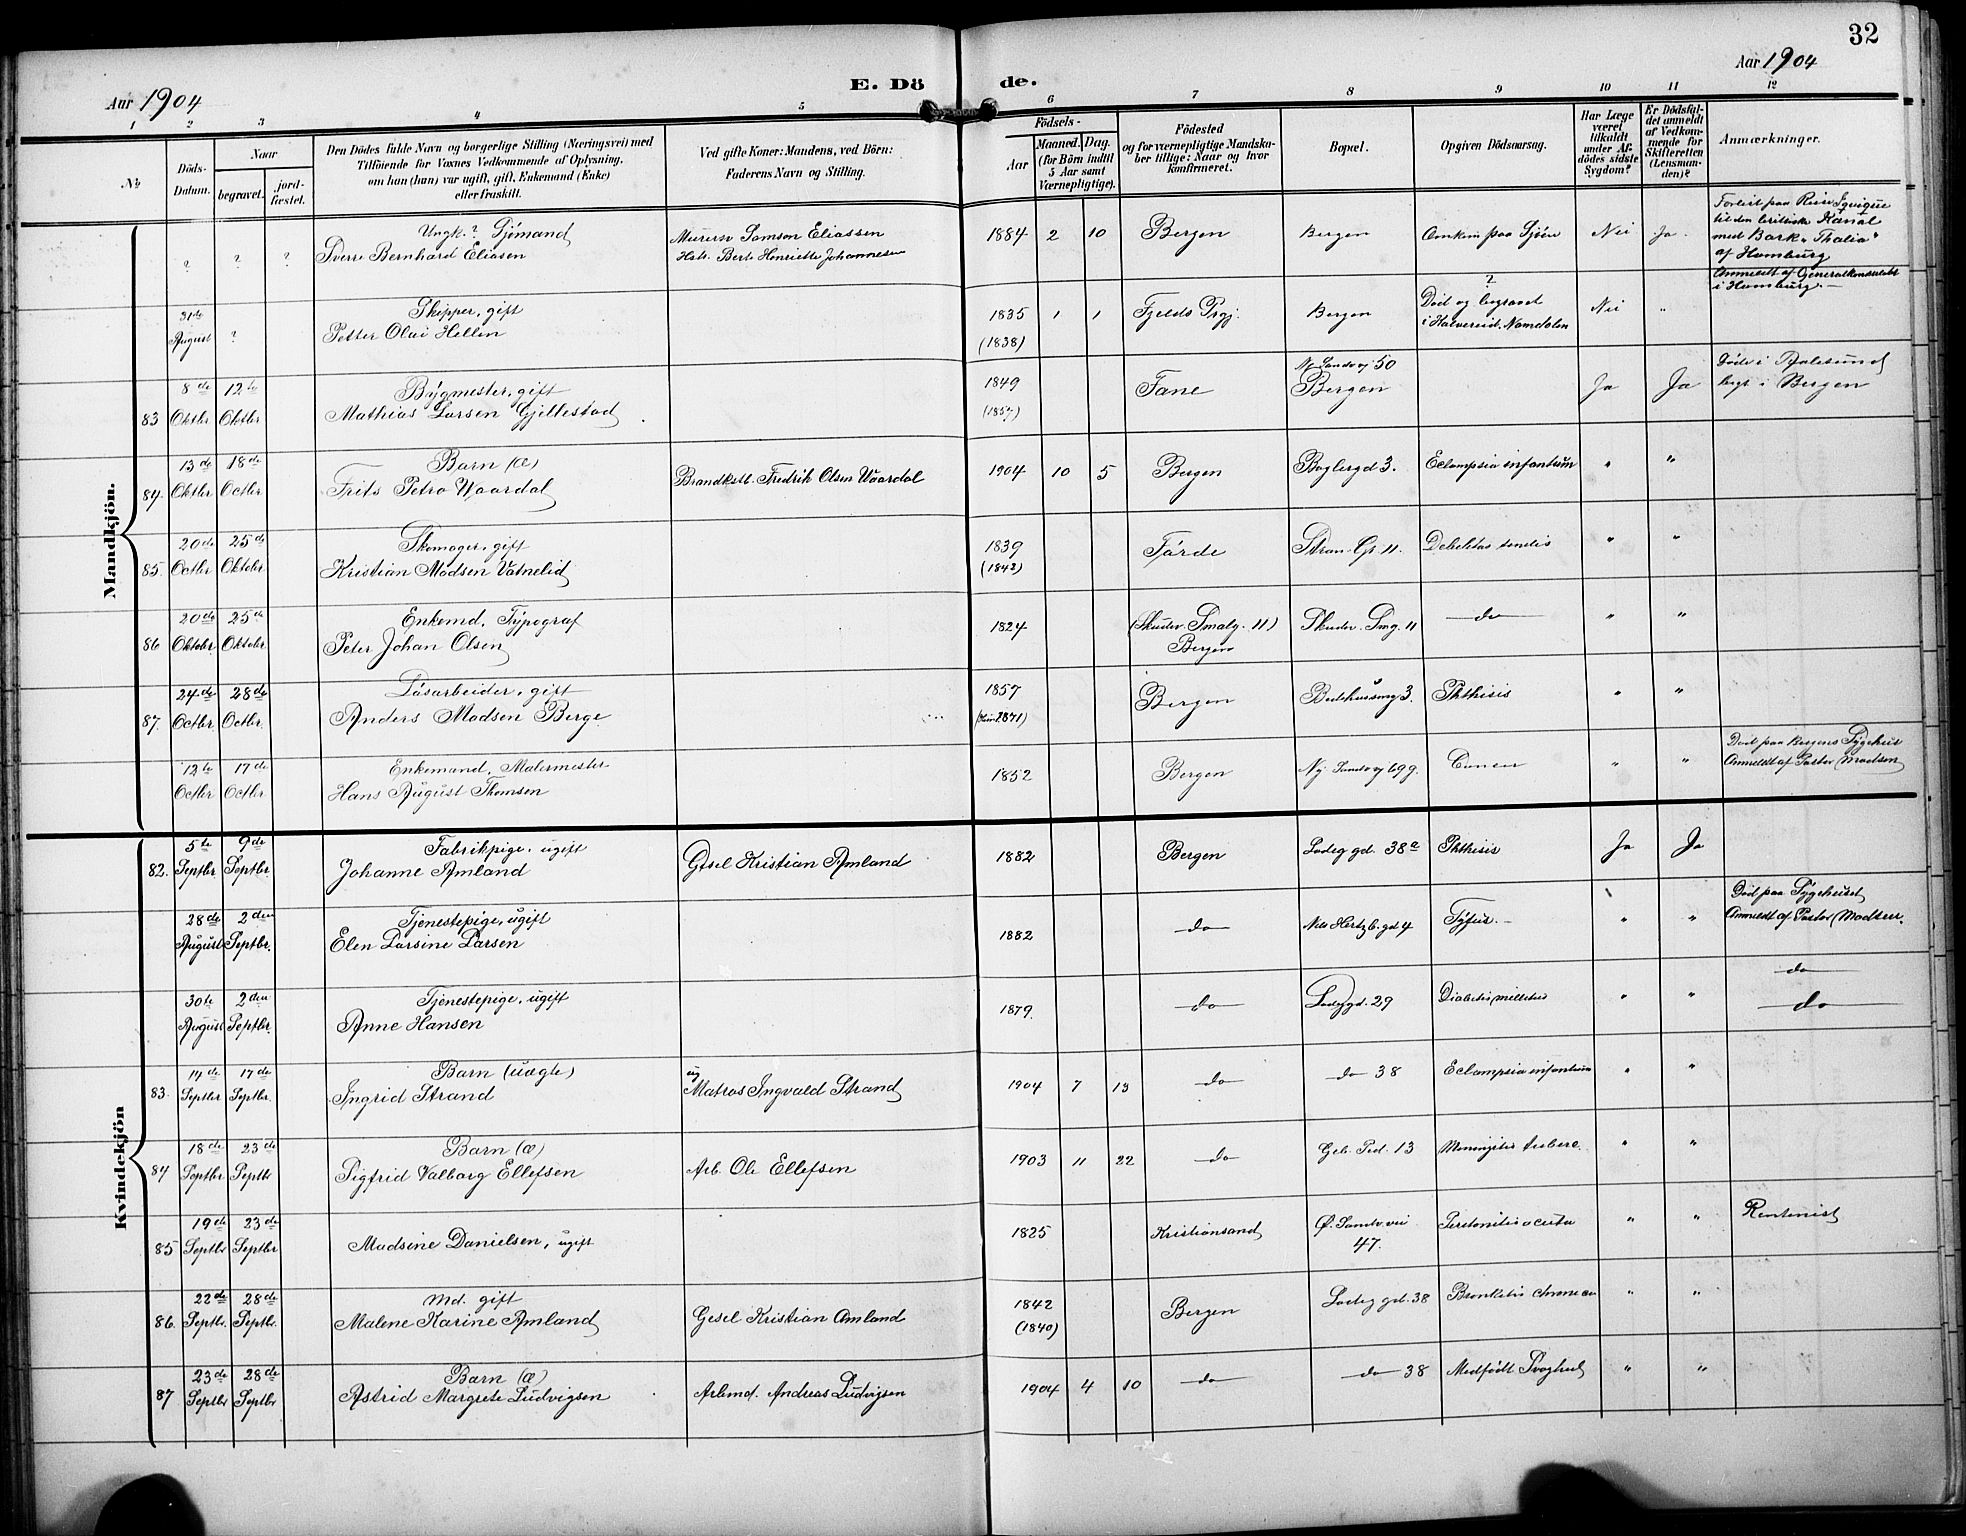 32
Aar 1904
E. Dö
de.
Aar 1904
1 2 3 4 5 6 7 8 9 10 11 12
No
Döds-Datum.
Naar
begravet.
jord-fæstet.
Den Dödes fulde Navn og borgerlige Stilling (Næringsvei) med
Tilföiende for Voxnes Vedkommende af Oplysning,
om han (hun) var ugift, gift, Enkemand (Enke)
eller fraskilt.
Ved gifte Koner: Mandens, ved Börn:
Faderens Navn og Stilling.
Födsels-
Aar
Maaned. Dag.
(for Börn indtil
5 Aar samt
Værnepligtige).
Födested
og for værnepligtige Mandska-
ber tillige: Naar og hvor
konfirmeret.
Bopæl.
Opgiven Dödsaarsag.
Har Læge
været
tilkaldt
under Af-
dödes sidste
Sygdom?
Er Dödsfal-
det anmeldt
af Vedkom-
mende for
Skifteretten
(Lensman-
den)?
Anmærkninger.
Mandkjön.
? ? ? Ungk.? Sjømand
Sverre Bernhard Eliasen
Murersv Samson Eliassen
Hstr. Bert Henriette Johannesen
1884 2 10 Bergen Bergen Omkom paa Sjöen Nei Ja.
Forlist paa Reise Iquique
til den britiske Kanal
med Bark "Thalia"
af Hamburg
Anmeldt af Generalkonsulatet
i Hamburg.
31te August ? Skipper, gift
Petter Olai Hellen
1835 (1838) 1 1 Fjelds Prgj. Bergen
?
Död og begravet
i Namdalen Nei "
83 8de Oktbr 12te Oktbr Bygmester, gift
Mathias Larsen Gjellestad
1849 Fane Ny Sandv vj 50
Bergen Ja Ja
Döde i Aalesund
begr i Bergen
84. 13de Oktbr 18de Octbr. Barn (æ)
Frits Petro Waardal
Brandkstb. Fredrik Olsen Waardal
1904 10 5 Bergen Boglergd 3. Eclampsia infantum " "
85. 20de Octbr 25de Oktober Skomager, gift
Kristian Madsen Vatnelid
1839 (1842) Förde Stran. Gt. 11. Debilitas senilis " "
86 20de Oktober 25de Oktober Enkemd, Typograf
Peter Johan Olsen
1824 (Skudev. Smalg. 11)
Bergen Skudev. Smg. 11 do " "
87. 24de Octbr. 28de Octbr. Lösarbeider, gift
Anders Madsen Berge
1857 Bergen Bedehussmg 3. Phthisis " "
12te Octbr 17de Octbr Enkemand, Malermester
Hans August Thomsen
1852 Bergen Ny Sandv vj 69 g. Cancer " "
Död paa Bergens Sygehus
Anmeldt af Pastor Madsen
Kvindekjön
82. 5te Septbr 9de Septbr. Fabrikpige, ugift
Johanne Amland
Gesel Kristian Amland
1882 Bergen Ladeg gd. 38a Phthisis Ja Ja
28de August 2den Septbr. Tjenestepige, ugift
Elen Larsine Larsen
1882 do Nils Hertzb. gd 4 Tyfus. " "
Död paa Sygehuset
Anmeldt af Pastor Madsen.
30te August 2den Septbr. Tjenestepige, ugift
Anne Hansen
1879. do Ladeggd. 29 Diabetis mellitus " "
do
do
83. 14de Septbr 17de Septbr. Barn (uægte)
Ingrid Strand
ug
Matros Ingvald Strand
1904 7 13 do do 38 Eclampsia infantum " "
84 18de Septbr 23de Septbr Barn (æ)
Sigfrid Valborg Ellefsen
Arb. Ole Ellefsen
1903 11 22 do 13 Meningitis tuberc. " "
85 19de Septbr 23de Septbr
Madsine Danielsen, ugift
1825 Kristiansand Ø. Sandv vei
47. Peretonitis acuta " " Rentenist
86. 22de Septbr. 28de Septbr. Md. gift
Malene Karine Amland
Gesel Kristian Amland
1842 (1840) Bergen Ladeg gd. 38 Bronkitis chronica " "
87 23de Septbr 28de Septbr Barn (æ)
Astrid Margrete Ludvigsen
Arbmd. Andreas Ludvigsen
1904 4 10 do do 38 Medfödt Svaghed " "